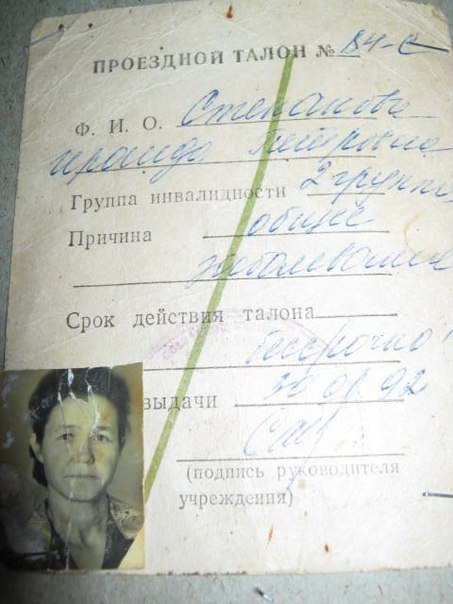 ПРОЕЗДНОЙ ТАЛОН № 84-С
Ф. И. О. Степанова
Ираида Петровна
Группа инвалидности 2 группа
Причина общее
заболевание
Срок действия талона
бессрочно
выдачи 30 92
(подпись руководителя
учреждения)